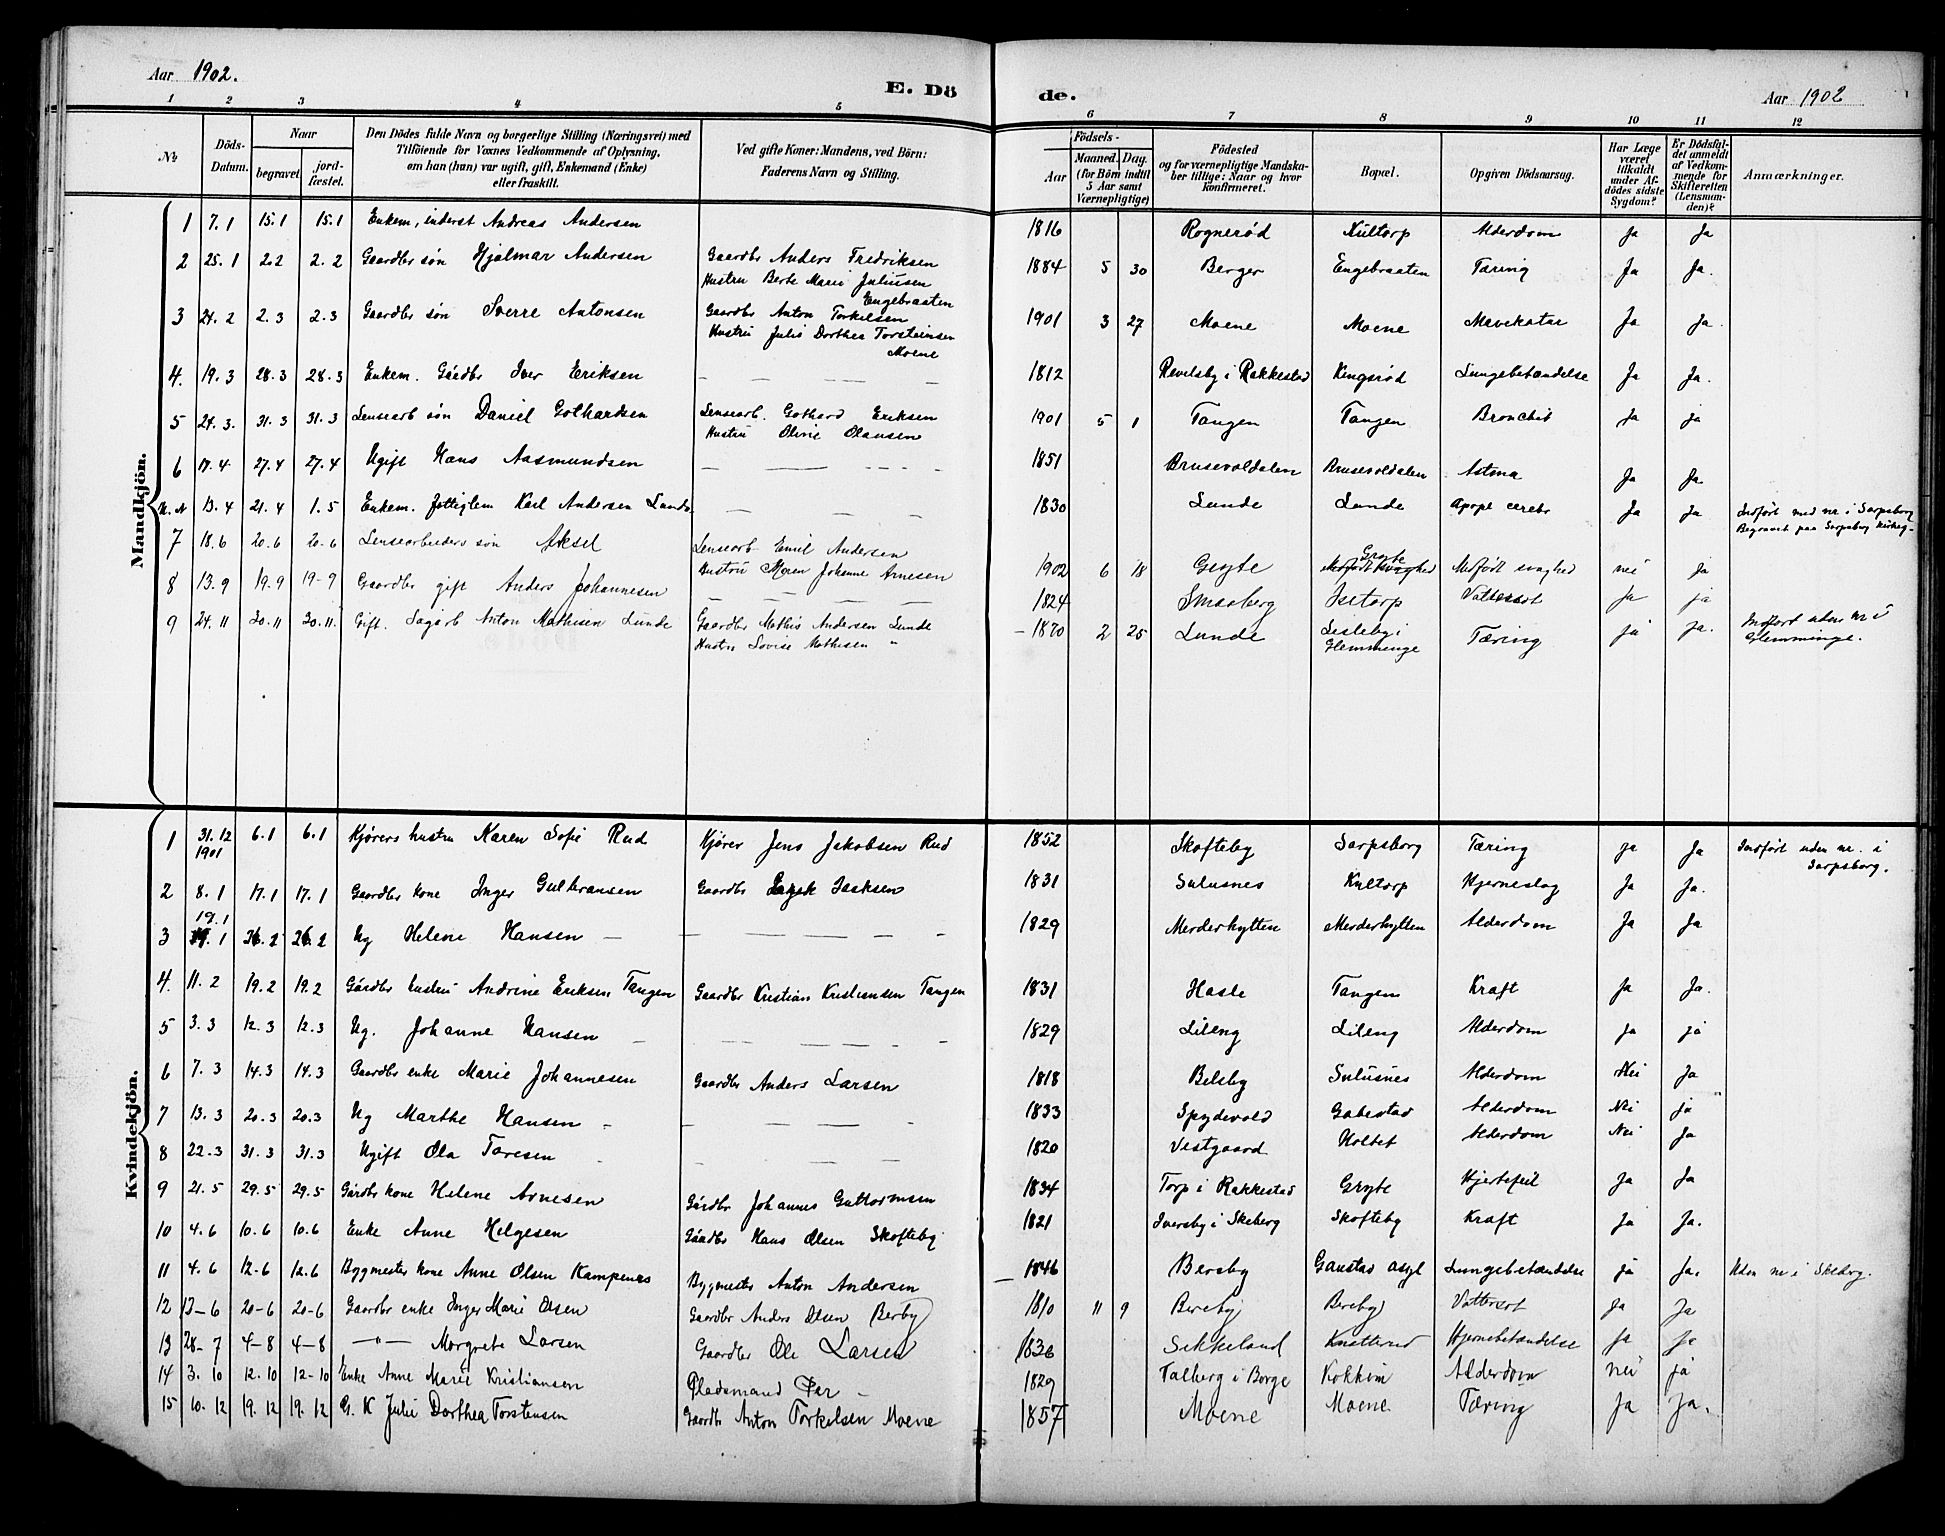 Aar 1902. E. Dö de. Aar 1902
1 2 3 4 5 6 7 8 9 10 11 12
No Döds-Datum. Naar begravet jordfæstet. Den Dödes fulde Navn og borgerlige Stilling (Næringsvei) med Tilföiende for Voxnes Vedkommende af Oplysning, om han (hun) var ugift, gift, Enkemand (Enke) eller fraskilt. Ved gifte Koner: Mandens, ved Börn: Faderens Navn og Stilling. Födsels- Aar Maaned. Dag. (for Börn indtil 5 Aar samt Værnepligtige) Födested og for værnepligtige Mandskaber tillige: Naar og hvor konfirmeret. Bopæl. Opgiven Dödsaarsag. Har Læge været tilkaldt under Afdödes sidste Sygdom? Er Dödsfaldet anmeldt af Vedkommende for Skifteretten (Lensmanden)? Anmærkninger.
Mandkjön.
1 7.1 15.1 15.1 Enkem, inderst Andreas Andersen 1816 Rognerød Kultorp Alderdom Ja Ja
2 25.1 2.2 2.2 Gaardbr søn Hjalmar Andersen Gaardbr Anders Fredriksen 1884 5 30 Berger Engebraaten Tæring Ja Ja.
Hustru Berte Marie Juliusen
Engebraaten
3 24.2 2.3 2.3 Gaardbr søn Sverre Antonsen Gaardbr Anton Torkelsen 1901 3 27 Moene Moene Mavekatar Ja Ja.
Hustru Julie Dorthea Torsteinsen
Moene
4. 19.3 28.3 28.3 Enkem. Gårdbr Iver Eriksen — — — 1812 Revelsby i Rakkestad Kingsrød Lungebetændelse Ja Ja.
5 24.3. 31.3 31.3 Lensearb søn Daniel Gothardsen Lensearb. Gothard Eriksen 1901 5 1 Tangen Tangen Bronchit Ja ja
Hustru Olivie Olausen
6 17.4 27.4 27.4 Ugift Hans Aasmundsen — — — 1851 Brusevoldalen Brusevoldalen Astma Ja Ja
U.N 13.4 21.4 1.5 Enkem. Karl Andersen Lunde — — — 1830 Lunde Lunde Apopl cerebr Ja Ja Indført med nr i Sarpsborg
Begravet paa Sarpsborg kirkeg.
7 18.6 20.6 20-6 Lensearbeiders søn Aksel Lensearb Emil Andersen 1902 6 18 Gryte Medfødt svaghed Gryte Medfødt svaghed nei Ja
Hustru Maren Johanne Arnesen
8 13.9 19.9 19-9 Gaardbr gift Anders Johannesen — — — 1824 Smaaberg Isetorp Vattersot Ja ja
9 24.11 30.11 30.11. Gift. Sagarb Anton Mathisen Lunde Gaardbr Mathis Andersen Lunde – 1870 2 25 Lunde Lisleby i Glemminge Tæring ja Ja. Indført uden nr i Glemminge.
Hustru Lovise Mathisen "
Kvindekjön.
1 31.12 1901 6.1 6.1 Kjørers hustru Karen Sofie Rud Kjører Jens Jakobsen Rud 1852 Skofteby Sarpsborg Tæring ja Ja Indført uden nr. i Sarpsborg.
2 8.1 17.1 17.1 Gaardbr kone Inger Gulbransen Gaardbr Isaksen 1831 Sulusnes Kultorp Hjerneslag Ja Ja.
3 19.1 26.2 26.2 Ug Helene Hansen — — — 1829 Merderhytten Merderhytten Alderdom Ja Ja
4. 11.2 19.2 19.2 Gårdbr hustru Andrine Eriksen Tangen Gaardbr Kristian Kristiansen Tangen 1831 Hasle Tangen Kraft Ja Ja.
5 3.3 12.3 12.3 Ug. Johanne Hansen — — — 1829 Lileng Lileng Alderdom Ja jå
6 7.3 14.3 14.3 Gaardbr enke Marie Johannesen Gaardbr Anders Larsen 1818 Belsby Sulusnes Alderdom Nei Ja
7 13.3 20.3 20.3 Ug Marthe Hansen — — — 1833 Spydevold Gabestad Alderdom Nei ja
8 22.3 31.3 31.3 Ugift Ola Toresen — — — 1820 Vestgaard Holtet Alderdom Nei Ja
9 21.5 29.5 29.5 Gårdbr kone Helene Arnesen Gårdbr Johannes Guttormsen 1834 Torp i Rakkestad Gryte Hjertefeil Ja Ja
10 4.6 10.6 10.6 Enke Anne Helgesen Gårdbr Hans Olsen Skofteby 1821 Iversby i Skeberg Skofteby Kraft Ja Ja.
11 4.6 12-6 12.6 Bygmester kone Anne Olsen Kampenes Bygmester Anton Andersen – 1846 Bersby Gaustad asyl Lungebetændelse ja Ja. Uden nr i Skeberg.
12 13-6 20-6 20-6 Gaardbr enke Inger Marie Olsen Gaardbr Anders Olsen Berby 1810 11 9 Bereby Bereby Vattersot Ja Ja
13 28-7 4-8 4-8 —"— Margrete Larsen Gaardbr Ole Larsen 1836 Sikkeland Knatterud Hjernebetændelse Ja Ja
14 3.10 12.10 12-10 Enke Anne Marie Kristiansen Pladsmand Per – 1829 Talberg i Borge Kokkim Alderdom nei jå
15 10.12 19.12 19.12 G. K Julie Dorthea Torstensen Gaardbr Anton Torkelsen Moene 1857 Moene Moene Tæring Ja Ja.